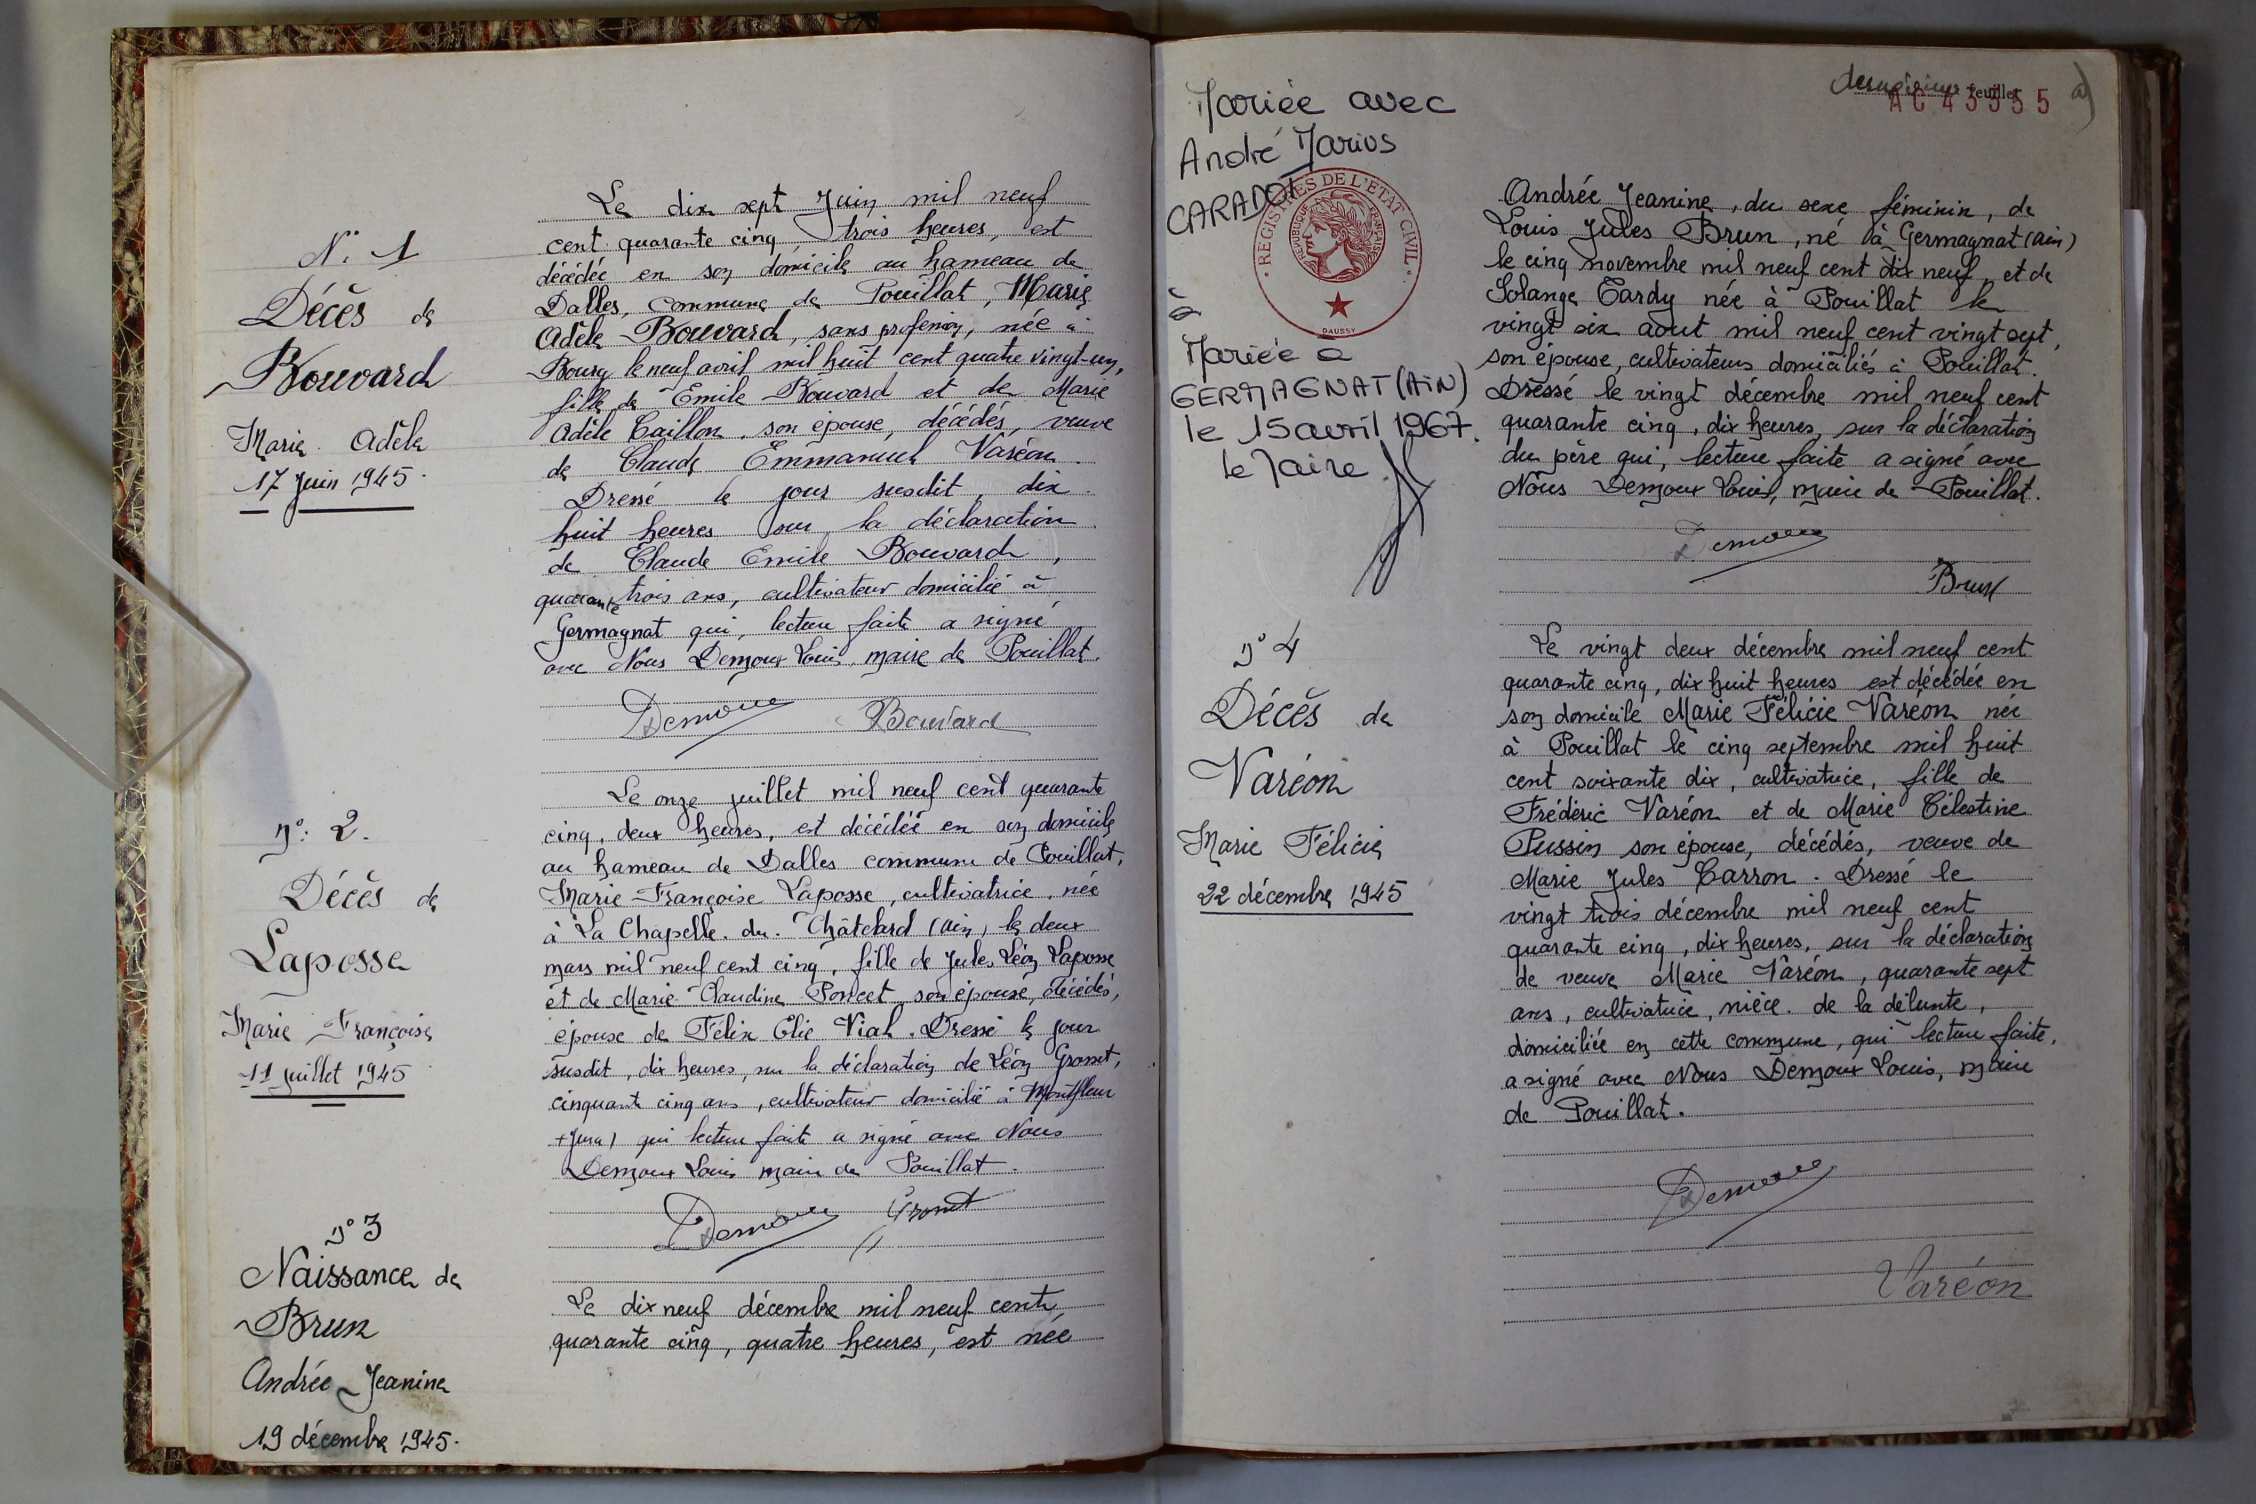 N: 1
Décès de
Bouvard
Marie Adèle
17 Juin 1945.
Le dix sept Juin mil neuf
cent quarante cinq, trois heures, est
décédée en son domicile au hameau de
Dalles, commune de Pouillat, Marie
Adèle Bouvard, sans profession, née à
Bourg le neuf avril mil huit cent quatre vingt-un,
fille de Emile Bouvard et de Marie
Adèle Caillon, son épouse, décédés, veuve
de Claude Emmanuel Varéon.
Dressé le jour susdit, dix
huit heures sur la déclaration
de Claude Emile Bouvard,
quarante trois ans, cultivateur domicilié à
Germagnat qui, lecture faite a signé
avec Nous Demoux Louis, maire de Pouillat.
Demoux Bouvard
N°: 2.
Décès de
Laposse
Marie Françoise
11 juillet 1945
Le onze juillet mil neuf cent quarante
cinq, deux heures, est décédée en son domicile
au hameau de Dalles commune de Pouillat,
Marie Françoise Laposse, cultivatrice, née
à La Chapelle du Châtelard (Ain), le deux
mars mil neuf cent cinq, fille de Jules Léon Laposse
et de Marie Claudine Poncet son épouse, décédés,
épouse de Félix Elie Vial. Dressé le jour
susdit, dix heures, sur la déclaration de Léon Grosset,
cinquante cinq ans, cultivateur domicilié à Montfleur
(Jura) qui lecture faite a signé avec Nous
Demoux Louis maire de Pouillat.
Demoux
N° 3
Naissance de
Brun
Andrée Jeanine
19 décembre 1945.
Le dix neuf décembre mil neuf cent
quarante cinq, quatre heures, est née
feuillet
AC 43935
Mariée avec
André Marius
CARADOT
à
Mariée à
GERMAGNAT (AiN)
le 15 avril 1967.
le Maire
REGISTRES DE L'ETAT CIVIL
REPUBLIQUE FRANÇAISE
DAUSSY
Andrée Jeanine, du sexe féminin, de
Louis Jules Brun, né à Germagnat (Ain)
le cinq novembre mil neuf cent dix neuf, et de
Solange Tardy née à Pouillat le
vingt six aout mil neuf cent vingt sept,
son épouse, cultivateurs domiciliés à Pouillat.
Dressé le vingt décembre mil neuf cent
quarante cinq, dix heures, sur la déclaration
du père qui, lecture faite a signé avec
Nous Demoux Louis, maire de Pouillat.
Demoux
Brun
N° 4
Décès de
Varéon
Marie Félicie
22 décembre 1945
Le vingt deux décembre mil neuf cent
quarante cinq, dix huit heures est décédée en
son domicile Marie Félicie Varéon née
à Pouillat le cinq septembre mil huit
cent soixante dix, cultivatrice, fille de
Frédéric Varéon et de Marie Célestine
Pussin son épouse, décédés, veuve de
Marie Jules Carron. Dressé le
vingt trois décembre mil neuf cent
quarante cinq, dix heures, sur la déclaration
de veuve Marie Varéon, quarante sept
ans, cultivatrice, nièce de la défunte,
domiciliée en cette commune, qui lecture faite,
a signé avec Nous Demoux Louis, maire
de Pouillat.
Demoux
Varéon